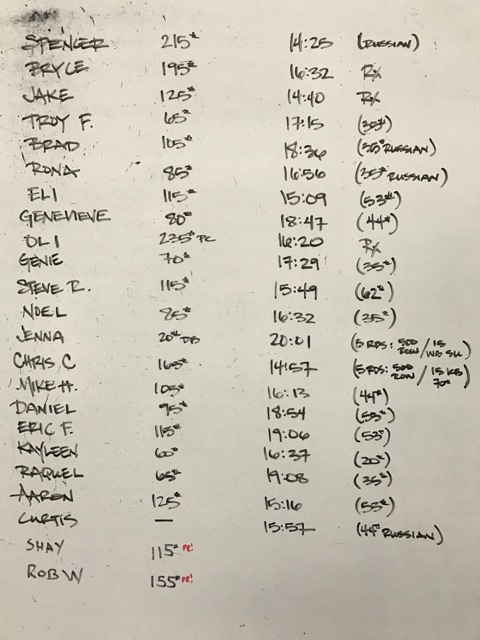 SPENCER 215# 14:25 (RUSSIAN)
BRYCE 195# 16:32 Rx
JAKE 125# 14:40 Rx
TROY F. 65# 17:15 (35#)
BRAD 105# 18:36 (35# RUSSIAN)
RONA 85# 16:56 (35# RUSSIAN)
ELI 115# 15:09 (53#)
GENEVIEVE 80# 18:47 (44#)
OLI 235# PC 16:20 Rx
GENIE 70# 17:29 (35#)
STEVE R. 115# 15:49 (62#)
NOEL 85# 16:32 (35#)
JENNA 20# DB 20:01 (5 RDS: 500 ROW / 15 WB SU)
CHRIS C 165# 14:57 (5 RDS: 500 ROW / 15 KB 70#)
MIKE H. 105# 16:13 (44#)
DANIEL 95# 18:54 (53#)
ERIC F. 115# 19:06 (53#)
KAYLEEN 60# 16:37 (20#)
RAQUEL 65# 19:08 (35#)
AARON 125# 15:16 (53#)
CURTIS — 15:57 (44# RUSSIAN)
SHAY 115# PR!
ROB W 155# PR!